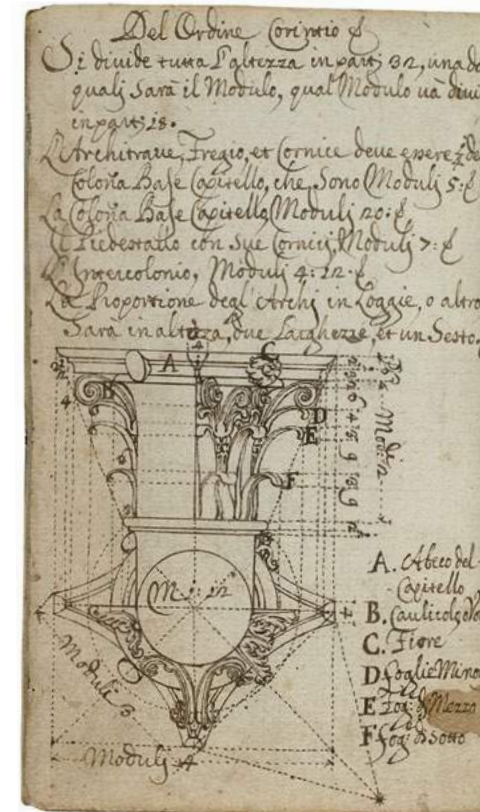 Del Ordine Corintio
Si divide tutta l'altezza in partj 32, una de
qualj Sarà il Modulo, qual Modulo và divi
in partj 18.
L'Architraue, Fregio, et Cornice deve essere de
Colona Base Capitello, che Sono Modulj 5:
La Colona Base Capitello Modulj 20:
Il Piedestallo con Sue Cornicj, Modulj 7:
L'Intercolonio, Modulj 4: 12
La Proportione degl'Archj in Loggie, o altro
Sarà in altezza due Larghezze, et un Sesto.
A
C
B
4
D
E
F
Modj 2
M. 1: 12
Modulj 3
Modulj 4
A. Abaco del
Capitello
B. Caulicolj o Vo
C. Fiore
D foglie Mino
E fog: di Mezzo
F fog: di Sotto